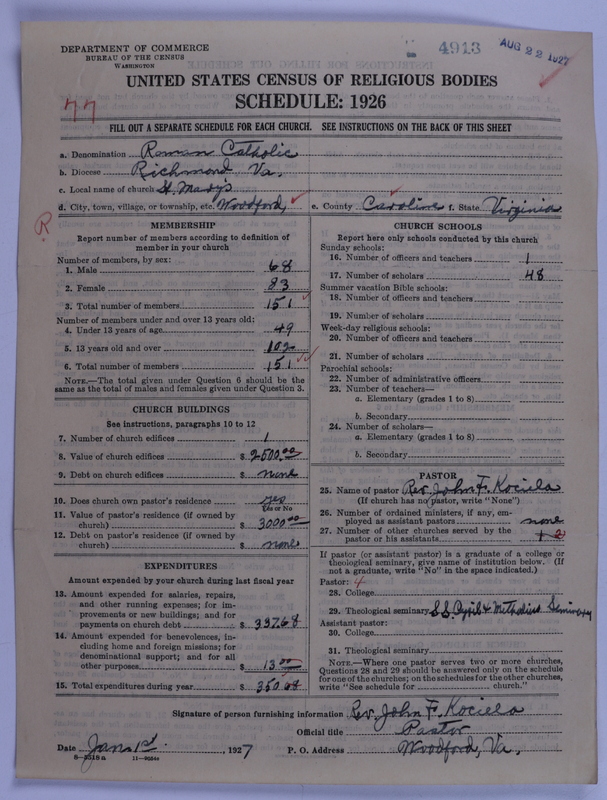 DEPARTMENT OF COMMERCE
BUREAU OF THE CENSUS
WASHINGTON
4913
AUG 22 1927
UNITED STATES CENSUS OF RELIGIOUS BODIES
SCHEDULE: 1926
77
FILL OUT A SEPARATE SCHEDULE FOR EACH CHURCH. SEE INSTRUCTIONS ON THE BACK OF THIS SHEET
a. Denomination Roman Catholic
b. Diocese Richmond, Va.
c. Local name of church St. Mary's
d. City, town, village, or township, etc. Woodford, e. County Caroline f. State Virginia
R
MEMBERSHIP
Report number of members according to definition of
member in your church
Number of members, by sex:
1. Male 68
2. Female 83
3. Total number of members 151
Number of members under and over 13 years old:
4. Under 13 years of age 49
5. 13 years old and over 102
6. Total number of members 151
NOTE.—The total given under Question 6 should be
same as the total of males and females given under Question 3.
CHURCH BUILDINGS
See instructions, paragraphs 10 to 12
7. Number of church edifices 1
8. Value of church edifices $ 2500.00
9. Debt on church edifices $ none
10. Does church own pastor's residence yes
Yes or No
11. Value of pastor's residence (if owned by
church) $ 3000.00
12. Debt on pastor's residence (if owned by
church) $ none
EXPENDITURES
Amount expended by your church during last fiscal year
13. Amount expended for salaries, repairs,
and other running expenses; for im-
provements or new buildings; and for
payments on church debt $ 337.68
14. Amount expended for benevolences, in-
cluding home and foreign missions; for
denominational support; and for all
other purposes $ 13.00
15. Total expenditures during year $ 350.68
CHURCH SCHOOLS
Report here only schools conducted by this church
Sunday schools:
16. Number of officers and teachers 1
17. Number of scholars 48
Summer vacation Bible schools:
18. Number of officers and teachers
19. Number of scholars
Week-day religious schools:
20. Number of officers and teachers
21. Number of scholars
Parochial schools:
22. Number of administrative officers
23. Number of teachers—
a. Elementary (grades 1 to 8)
b. Secondary
24. Number of scholars—
a. Elementary (grades 1 to 8)
b. Secondary
PASTOR
25. Name of pastor Rev. John F. Kociela
(If church has no pastor, write "None")
26. Number of ordained ministers, if any, em-
ployed as assistant pastors none
27. Number of other churches served by the
pastor or his assistants 1 2
If pastor (or assistant pastor) is a graduate of a college or
theological seminary, give name of institution below. (If
not a graduate, write "No" in the space indicated.)
Pastor: 4
28. College
29. Theological seminary S.S. Cyril & Methodius Seminary
Assistant pastor:
30. College
31. Theological seminary
NOTE.—Where one pastor serves two or more churches,
Questions 28 and 29 should be answered only on the schedule
for one of the churches; on the schedules for the other churches,
write "See schedule for church."
Signature of person furnishing information Rev. John F. Kociela
Official title Pastor
Date Jan. 1st, 1927 P. O. Address Woodford, Va.
8-5318a 11-9664a